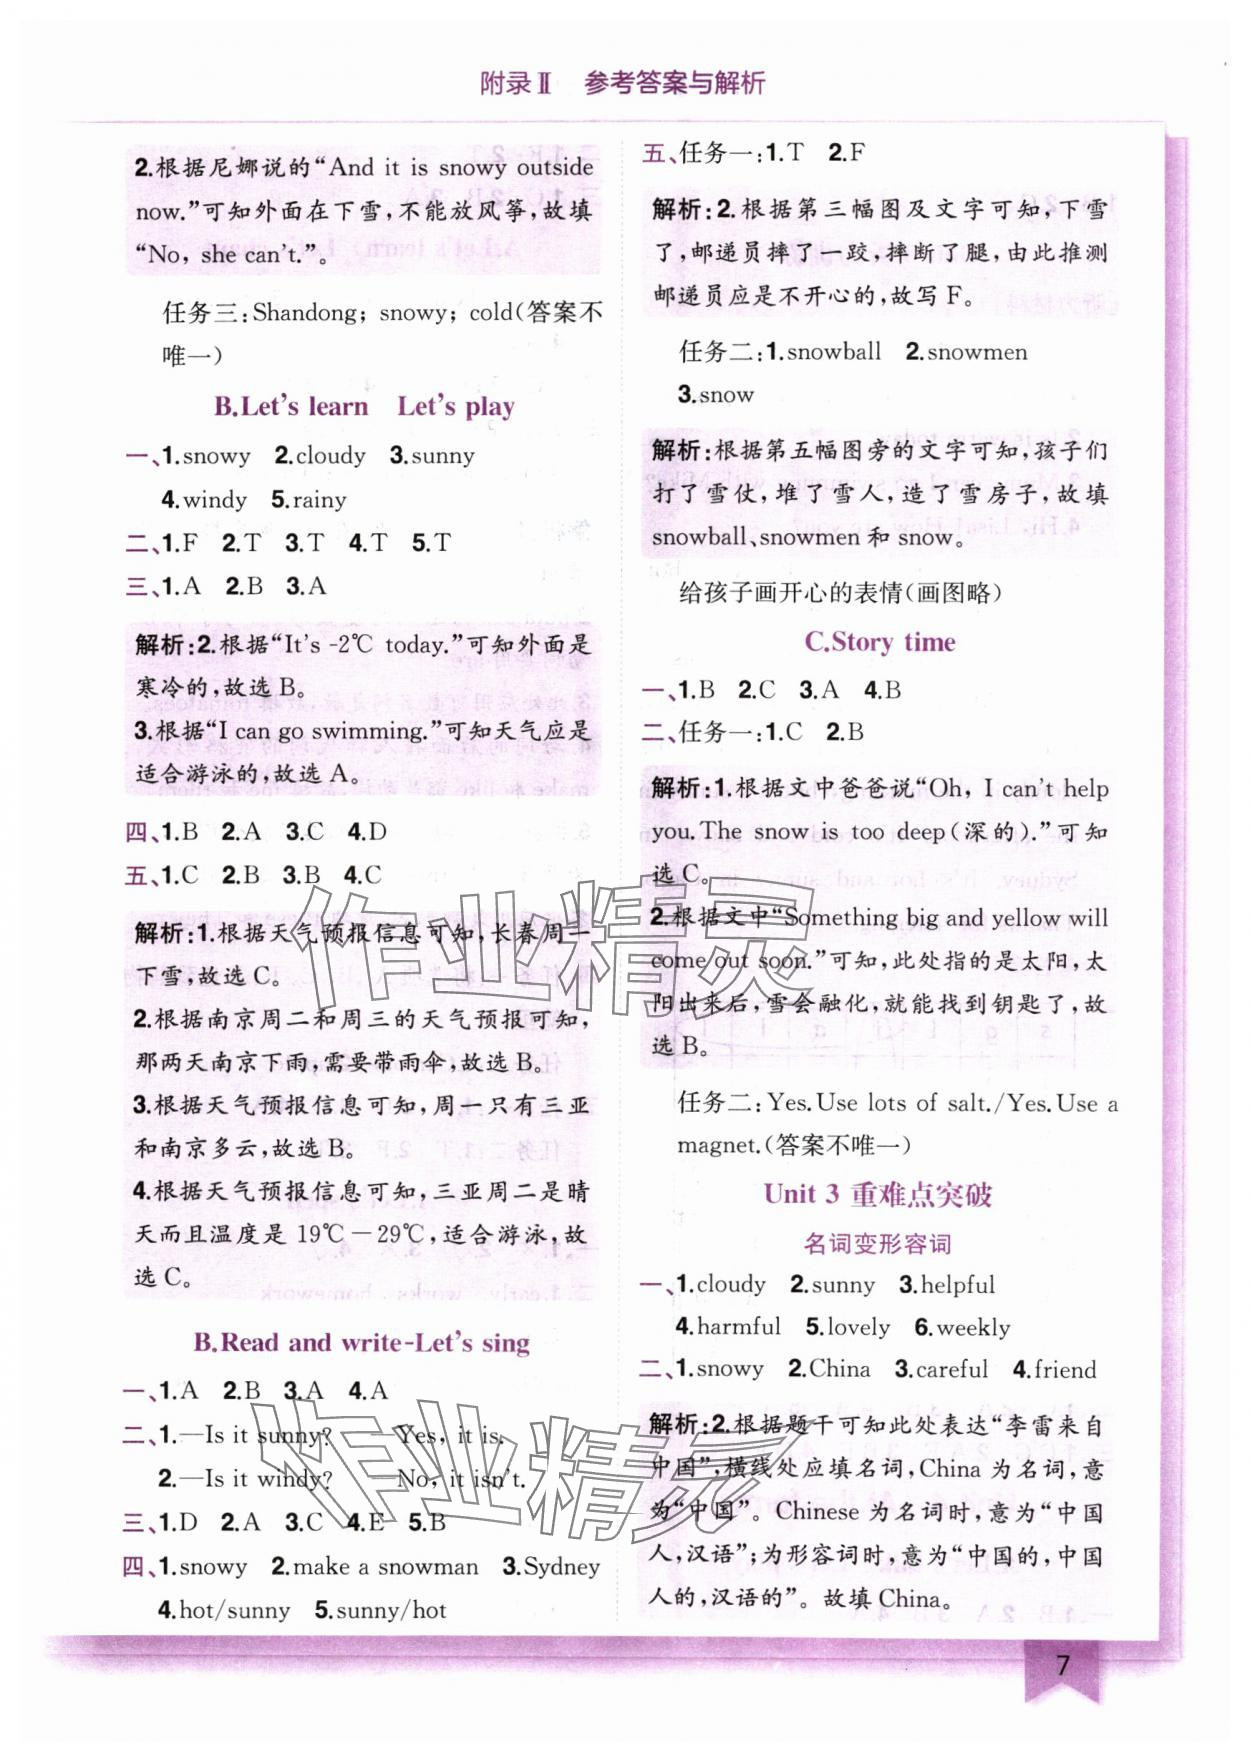 附录Ⅱ 参考答案与解析
2.根据尼娜说的“And it is snowy outside
now.”可知外面在下雪,不能放风筝,故填
“No, she can't.”。
任务三:Shandong; snowy; cold(答案不
唯一)
B.Let's learn Let's play
一、1.snowy 2.cloudy 3.sunny
4.windy 5.rainy
二、1.F 2.T 3.T 4.T 5.T
三、1.A 2.B 3.A
解析:2.根据“It's -2℃ today.”可知外面是
寒冷的,故选 B。
3.根据“I can go swimming.”可知天气应是
适合游泳的,故选 A。
四、1.B 2.A 3.C 4.D
五、1.C 2.B 3.B 4.C
解析:1.根据天气预报信息可知,长春周一
下雪,故选 C。
2.根据南京周二和周三的天气预报可知,
那两天南京下雨,需要带雨伞,故选 B。
3.根据天气预报信息可知,周一只有三亚
和南京多云,故选 B。
4.根据天气预报信息可知,三亚周二是晴
天而且温度是 19℃－29℃,适合游泳,故
选 C。
B.Read and write-Let's sing
一、1.A 2.B 3.A 4.A
二、1.—Is it sunny? —Yes, it is.
2.—Is it windy? —No, it isn't.
三、1.D 2.A 3.C 4.E 5.B
四、1.snowy 2.make a snowman 3.Sydney
4.hot/sunny 5.sunny/hot
五、任务一:1.T 2.F
解析:2.根据第三幅图及文字可知,下雪
了,邮递员摔了一跤,摔断了腿,由此推测
邮递员应是不开心的,故写 F。
任务二:1.snowball 2.snowmen
3.snow
解析:根据第五幅图旁的文字可知,孩子们
打了雪仗,堆了雪人,造了雪房子,故填
snowball、snowmen 和 snow。
给孩子画开心的表情(画图略)
C.Story time
一、1.B 2.C 3.A 4.B
二、任务一:1.C 2.B
解析:1.根据文中爸爸说“Oh, I can't help
you.The snow is too deep(深的).”可知
选 C。
2.根据文中“Something big and yellow will
come out soon.”可知,此处指的是太阳,太
阳出来后,雪会融化,就能找到钥匙了,故
选 B。
任务二:Yes.Use lots of salt./Yes.Use a
magnet.(答案不唯一)
Unit 3 重难点突破
名词变形容词
一、1.cloudy 2.sunny 3.helpful
4.harmful 5.lovely 6.weekly
二、1.snowy 2.China 3.careful 4.friend
解析:2.根据题干可知此处表达“李雷来自
中国”,横线处应填名词,China 为名词,意
为“中国”。Chinese 为名词时,意为“中国
人,汉语”;为形容词时,意为“中国的,中国
人的,汉语的”。故填 China。
7
作业精灵
作业精灵